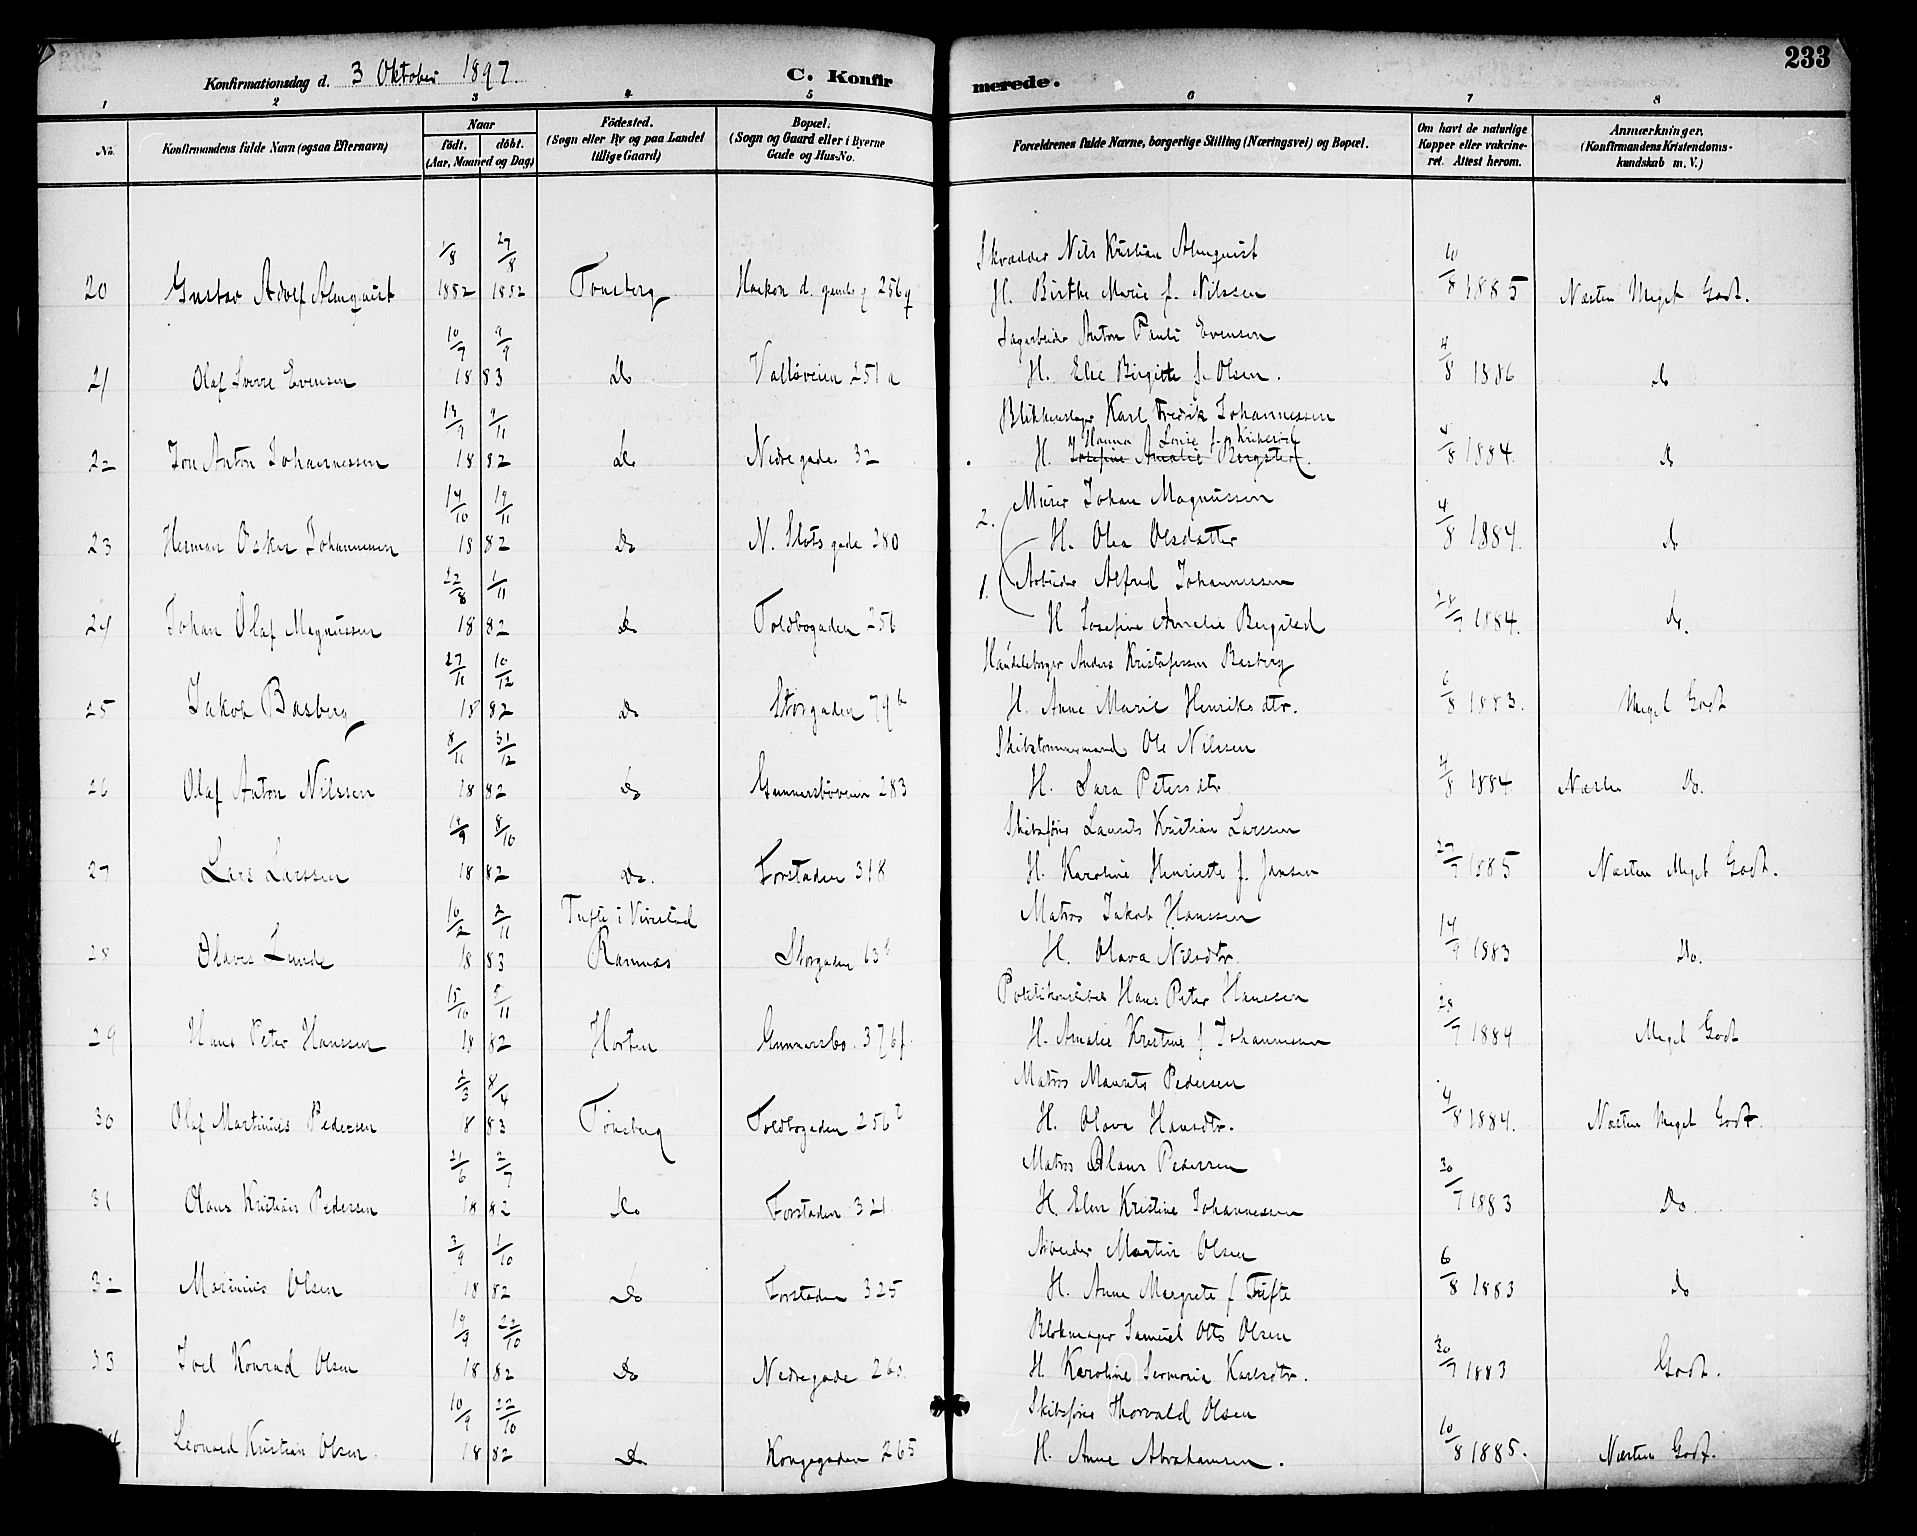 233
Konfirmationsdag d. 3 Oktober 1897.
C. Konfirmerede.
1 2 3 4 5 6 7 8
No. Konfirmandens fulde Navn (ogsaa Efternavn) Naar født. døbt. (Aar, Maaned og Dag) Födested. (Sogn eller By og paa Landet tillige Gaard) Bopæl. (Sogn og Gaard eller i Byerne Gade og Hus-No. Forældrenes fulde Navne, borgerlige Stilling (Næringsvei) og Bopæl. Om havt de naturlige Kopper eller vakcineret. Attest herom. Anmærkninger. (Konfirmandens Kristendomskundskab m. V.)
1/8 27/8 Skrædder Nils Kristian Almquist
20 Gustav Adolf Almquist 1882 1882 Tønsberg Haakon d. gamles g 256 q H. Birthe Marie f. Nilssen 10/8 1885 Næsten Meget Godt.
10/7 9/9 Sagarbeider Anton Pauli Evensen
21 Olaf Sverre Evensen 18 83 Do Valløveien 251 a H. Else Birgitte f. Olsen. 4/8 1886 do
13/9 9/11 Blikkenslager Karl Fredrik Johannessen
Hanna Louise f.
22 Jon Anton Johannessen 18 82 Do Nedregade 32 H. Josefine Amalie Bergsted. 4/8 1884. do
14/10 19/11 2. Murer Johan Magnussen
23 Herman Oskar Johannessen 18 82 Do N. Slotsgade 280 H. Olea Olsdatter 4/8 1884. do
22/8 1/11 1. Arbeider Alfred Johannessen
24 Johan Olaf Magnussen 18 82 Do Toldbogaden 256 H Josefine Amalie Bergsted 28/7 1884. do.
27/11 10/12 Handelsborger Anders Kristofersen Basberg
25 Jakob Basberg 18 82 Do Storgaden 79 b H. Anne Marie Henriksdtr. 6/8 1883. Meget Godt
8/11 31/12 Skibstømmermand Ole Nilssen
26 Olaf Anton Nilssen 18 82 Do Gunnarsbøveien 283 H. Sara Petersdtr 4/8 1884 Næsten Do.
14/9 8/10 Skibsfører Laurits Kristian Larssen
27 Lars Larssen 18 82 Do. Forstaden 318 H. Karoline Henriette f. Jansen 27/7 1885 Næsten Meget Godt.
10/2 2/11 Tufte i Vivestad Matros Jakob Hanssen
28 Olaves Lunde 18 83 Ramnæs Storgaden 63 H. Olava Nilsdtr. 14/9 1883 Do.
15/10 5/11 Politikonstabel Hans Peter Hanssen
29 Hans Peter Hanssen 18 82 Horten Gunnarsbø. 376 f. H. Amalie Kristine f Johannessen 28/7 1884 Meget Godt
2/3 8/4 Matros Maurits Pedersen
30 Olaf Martinius Pedersen 18 83 Tønsberg Toldbogaden 256 H. Olava Hansdtr. 4/8 1884. Næsten Meget Godt.
21/6 2/7 Matros Olaus Pedersen
31 Olaus Kristian Pedersen 18 82 Do Forstaden 321 H. Elen Kristine Johannessen 30/7 1883 Do.
3/9 1/10 Arbeider Martin Olsen
32 Marinius Olsen 18 82 Do Forstaden 325 H. Anne Margrete f Tufte 6/8 1883 Do
19/9 22/10 Blokmager Samuel Otto Olsen
33 Joel Konrad Olsen 18 82 Do Nedregade 260 H. Karoline Severine Karlsdtr. 30/7 1883 Godt.
10/9 22/10 Skibsfører Thorvald Olsen
Leonard Kristian Olsen. 18 82 Do Kongegaden 265 H. Anne Abrahamsen. 10/8 1885. Næsten Godt.